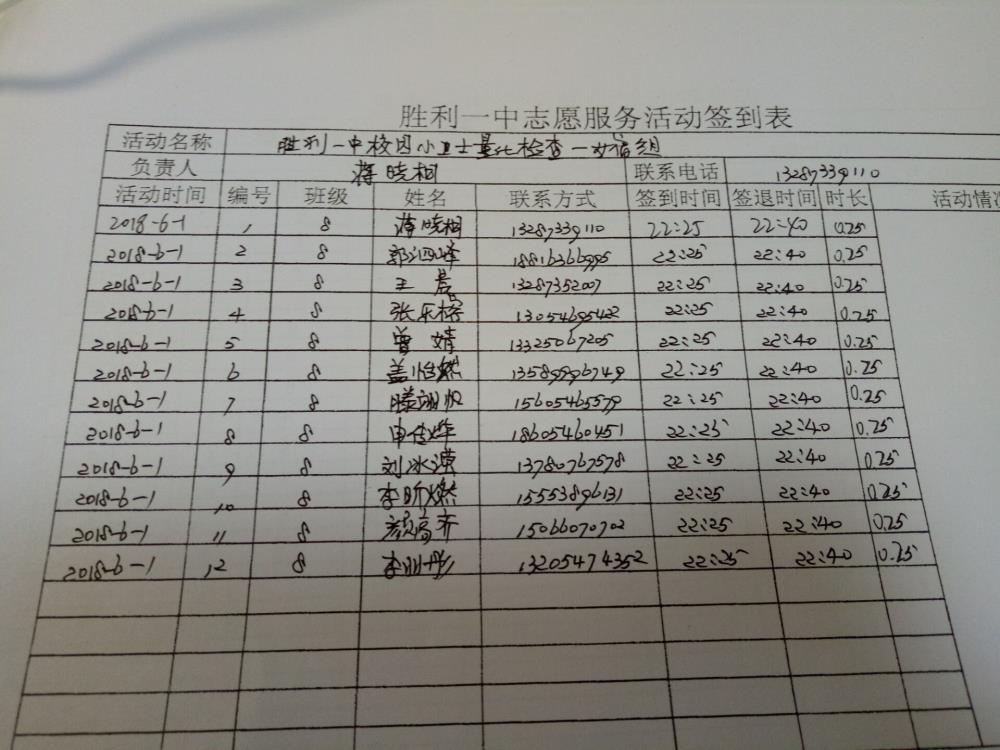 胜利一中志愿服务活动签到表
活动名称 胜利一中校园小卫士量化检查一女宿组
负责人 蒋晓桐 联系电话 13287339110
活动时间 编号 班级 姓名 联系方式 签到时间 签退时间 时长 活动情
2018-6-1 1 8 蒋晓桐 13287339110 22:25 22:40 0.25
2018-6-1 2 8 郭泗峰 18816366995 22:25 22:40 0.25
2018-6-1 3 8 王晨 13287352007 22:25 22:40 0.25
2018-6-1 4 8 张乐榕 13054695422 22:25 22:40 0.25
2018-6-1 5 8 曾婧 13325067205 22:25 22:40 0.25
2018-6-1 6 8 盖怡然 13589996749 22:25 22:40 0.25
2018-6-1 7 8 滕翊帆 15605465579 22:25 22:40 0.25
2018-6-1 8 8 18605460451 22:25 22:40 0.25
2018-6-1 9 8 刘冰滢 13780767578 22:25 22:40 0.25
2018-6-1 10 8 李昕燃 15553896131 22:25 22:40 0.25
2018-6-1 11 8 颜高齐 15066070702 22:25 22:40 0.25
2018-6-1 12 8 李明彤 13205474352 22:25 22:40 0.25